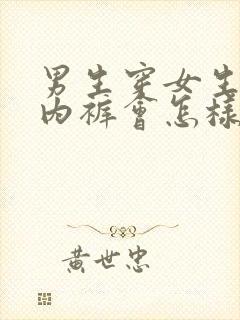 男生穿女生
内裤會怎樣
黄世忠